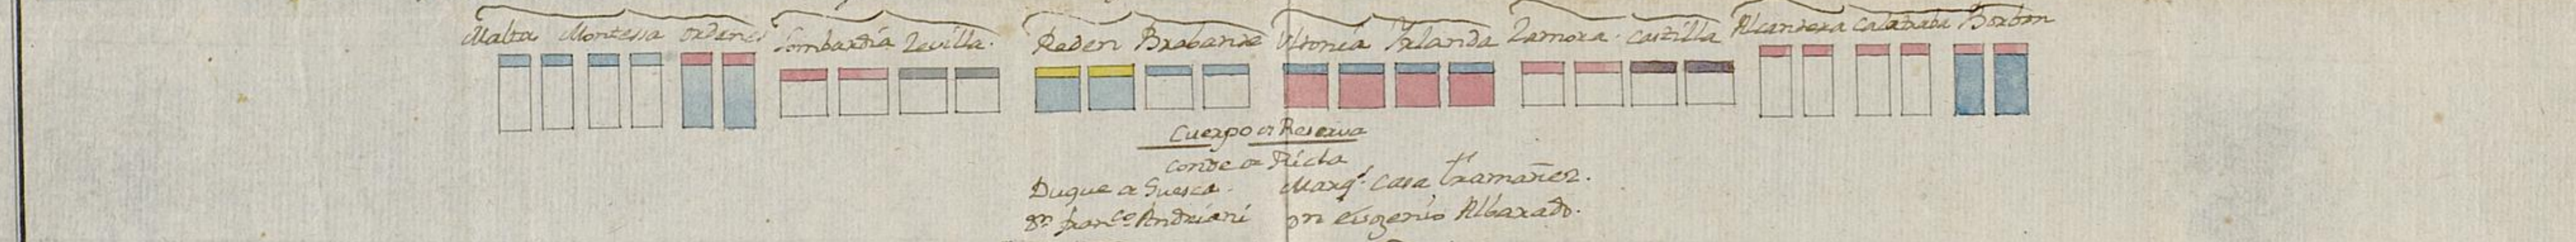 Malta Montessa ordenes Lombardia Zevilla. Reden Brabante Vltonia Yrlanda Zamora. Castilla Alcantara Calatraba Borbon
Cuerpo de Reserva
Conde de Ricla
Duque de Huesca. Marqs. Casa Tramañez.
Dn. franco. Andriani Dn Eugenio Albarado.